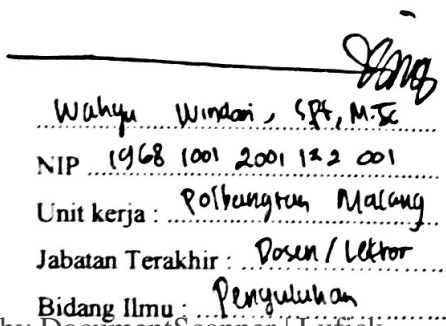 Wahyu Windari, SPt, M.Sc
NIP 1968 1001 2001 122 001
Unit kerja : Polbangtan Malang
Jabatan Terakhir : Dosen / Lektor
Bidang Ilmu : Penyuluhan
by DocumentScanner | Lufick